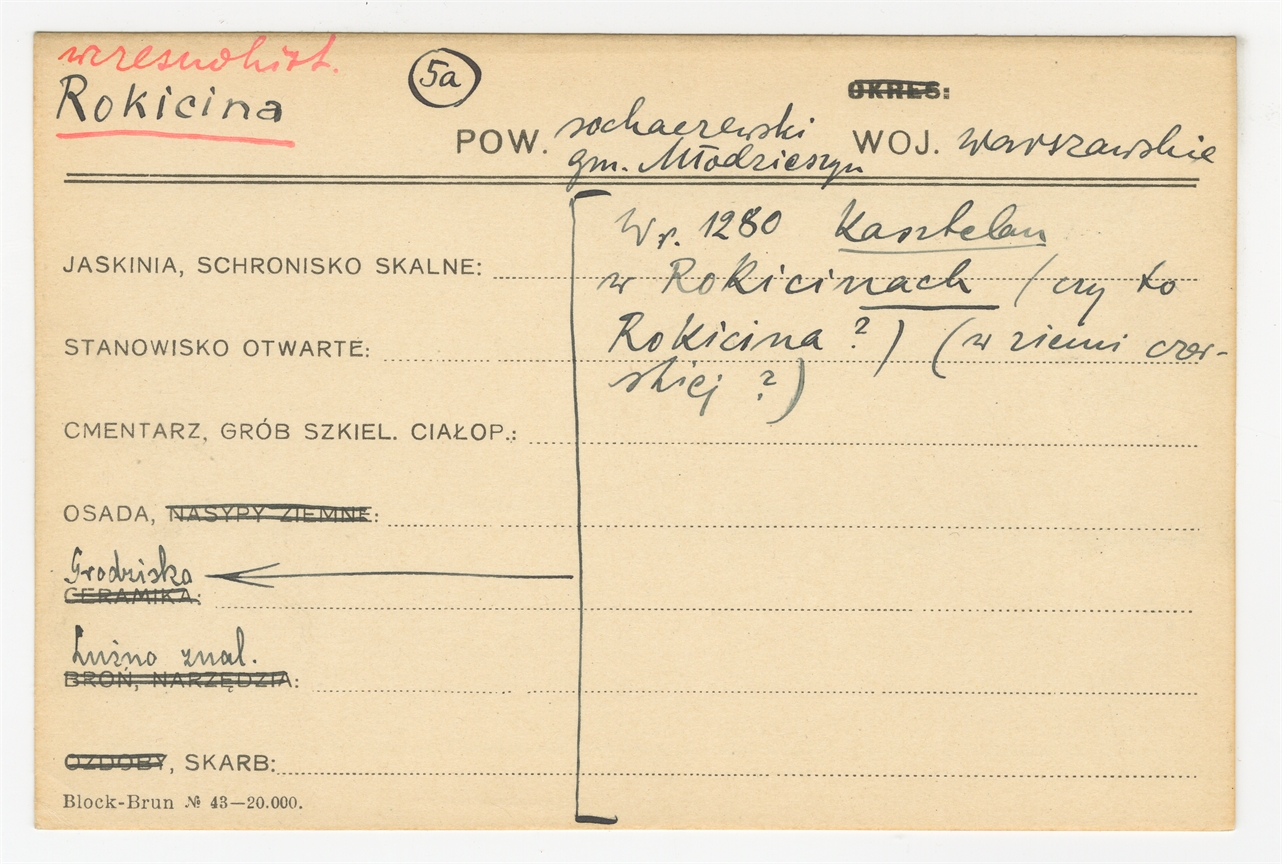 wczesnohist.
Rokicina
5a
OKRES:
POW. sochaczewski WOJ. warszawskie
gm. Młodzieszyn
W r. 1280 Kasztelan
JASKINIA, SCHRONISKO SKALNE:
w Rokicinach (czy to
STANOWISKO OTWARTE:
Rokicina ?) (w ziemi czer-
skiej ?)
CMENTARZ, GRÓB SZKIEL. CIAŁOP.:
OSADA, NASYPY ZIEMNE:
Grodziska
CERAMIKA:
Luźno znal.
BROŃ, NARZĘDZIA:
OZDOBY, SKARB:
Block-Brun № 43—20.000.